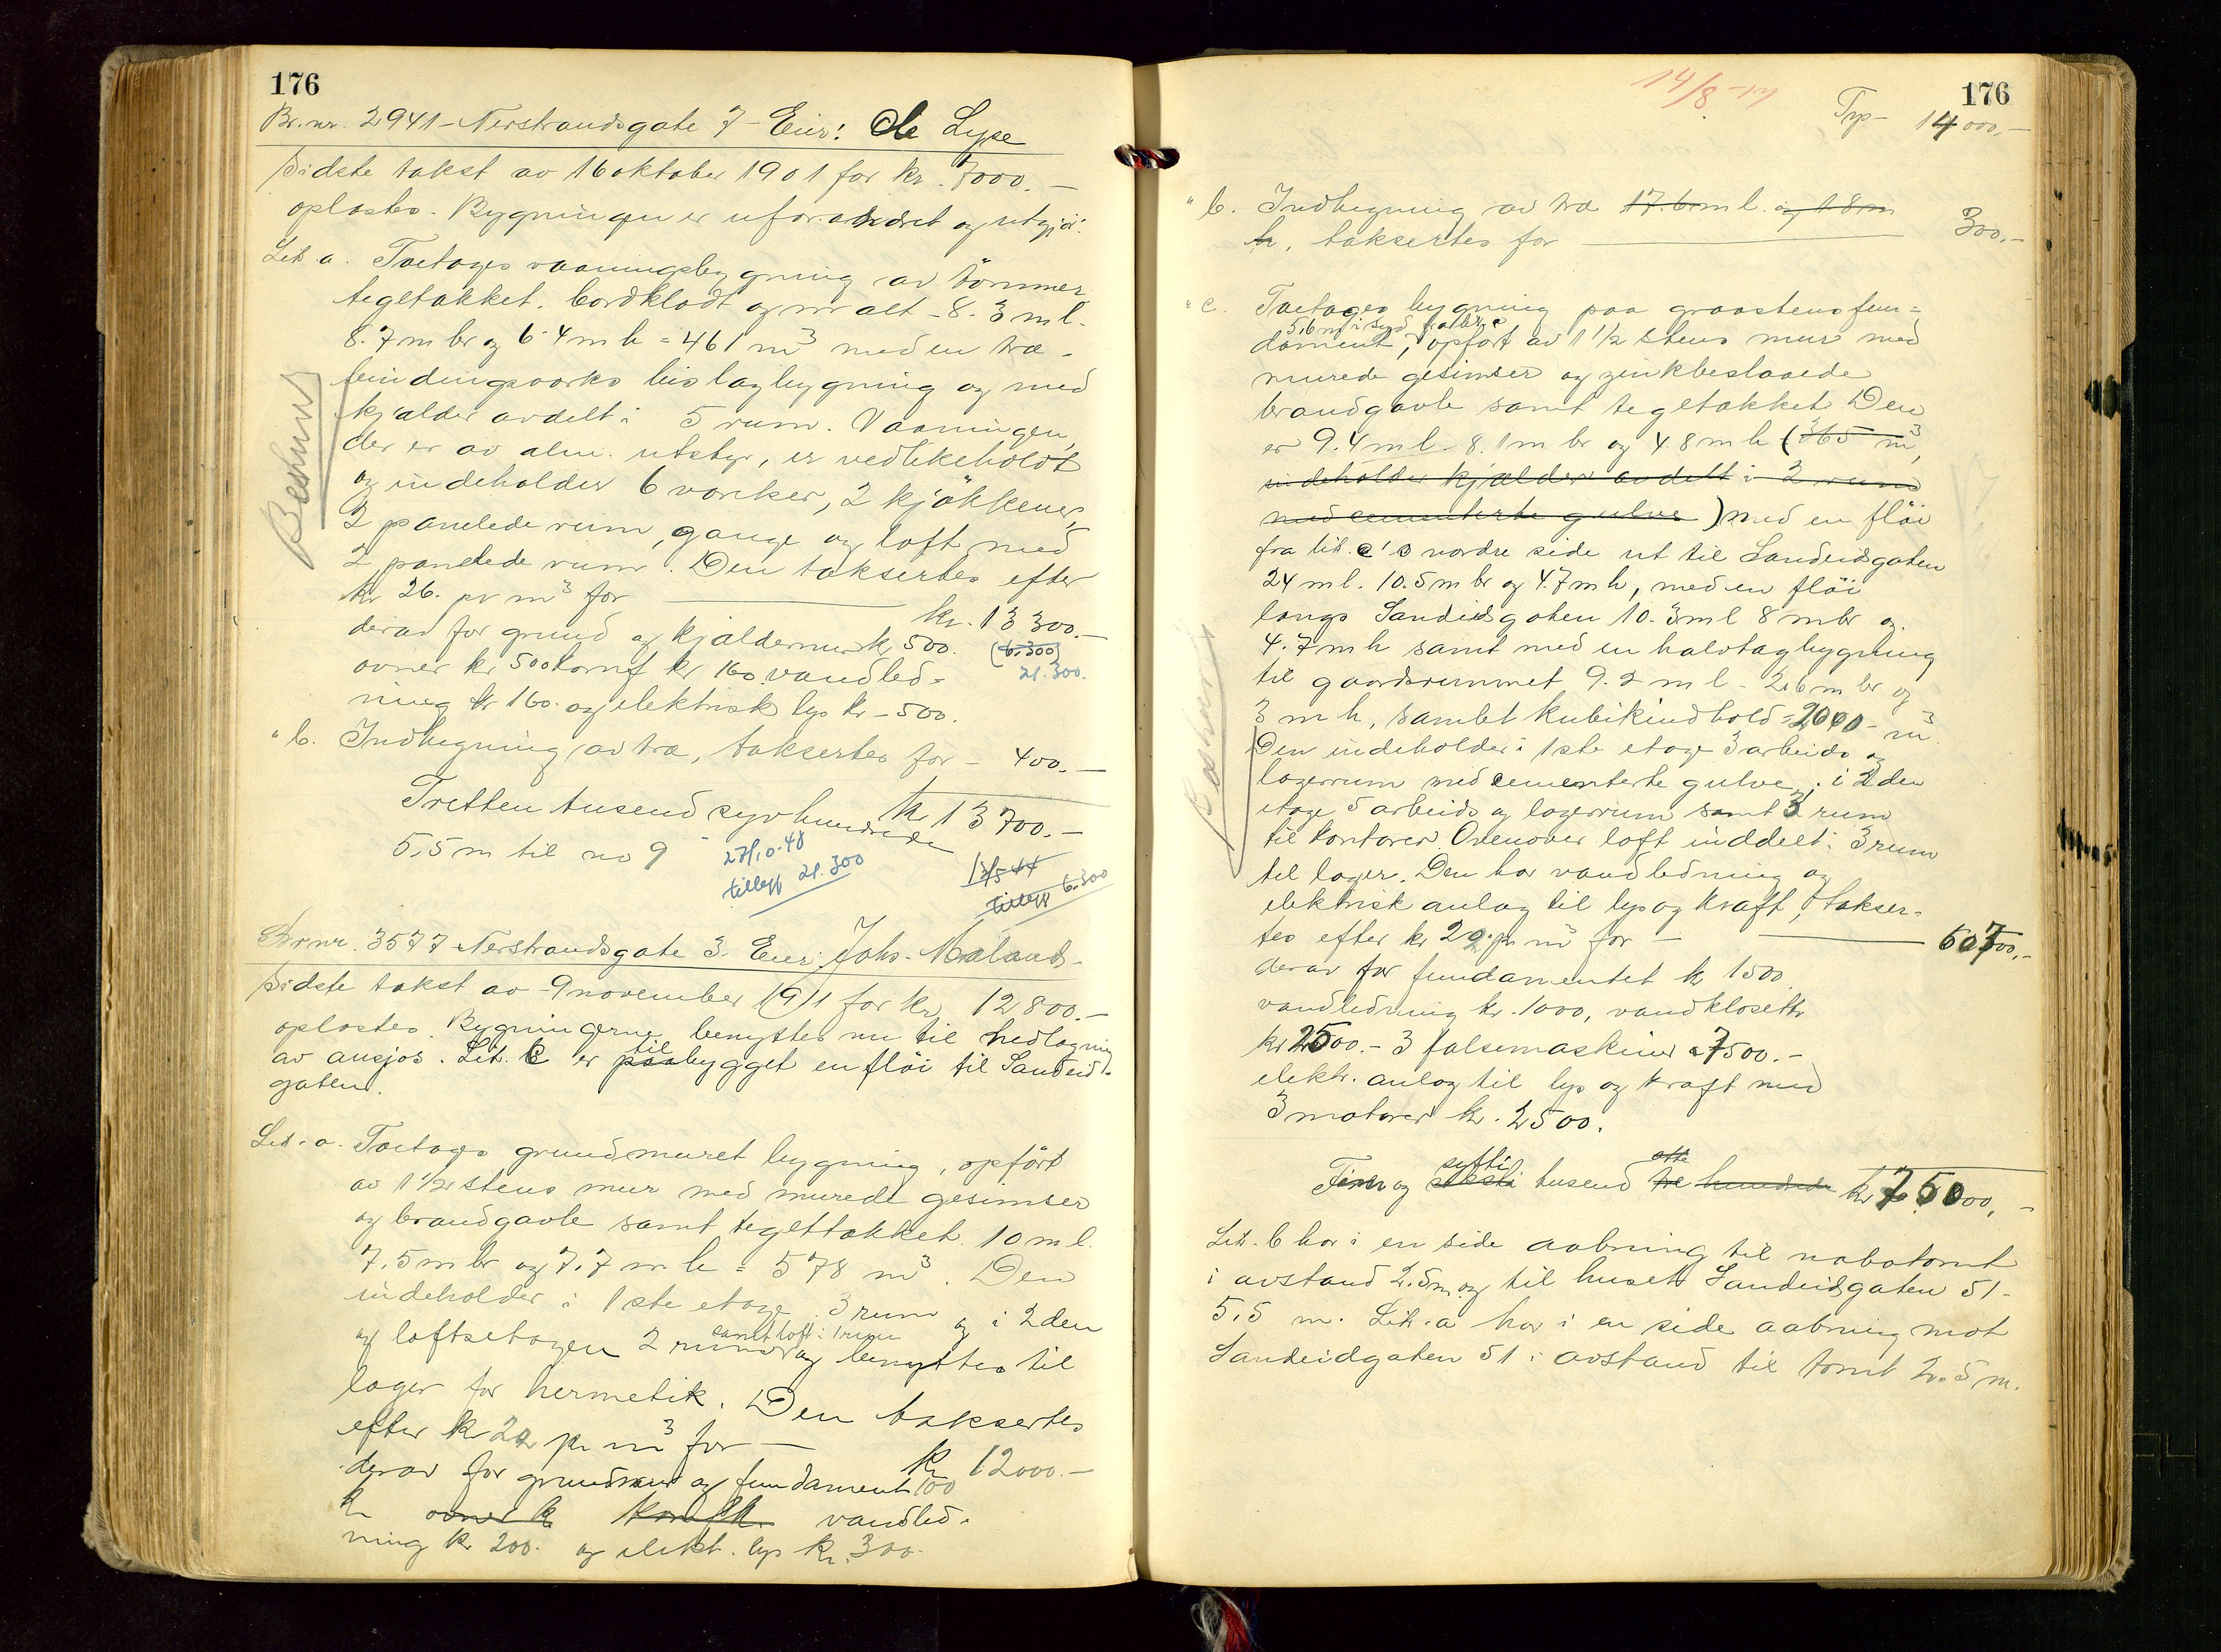 176
Br.nr. 2941 - Nerstrandsgate 7 - Eier: Ole Lyse
Sidste takst av 16 oktober 1901 for kr. 7000.-
oplæstes. Bygningen er uforandret og utgjør:
Lit a. Toetages vaaningsbygning av tømmer
tegltækket, bordklædt og malt - 8.3 m l.
8.7 m br og 6.4 m h = 461 m³ med en træ-
bindingsverks bislagbygning og med
kjælder avdelt i 5 rum. Vaaningen,
der er av alm. utstyr, er vedlikeholdt
og indeholder 6 værelser, 2 kjøkkener,
2 panelede rum, gange og loft med
2 panelede rum. Den takseres efter
kr 26. pr m³ for kr. 13300.-
derav for grund og kjældermur kr 500. (6.300)
ovner kr 500 komf kr 160 vandled- 21.300.
ning kr 160. og elektrisk lys kr - 500.
" b. Indhegning av træ, takseres for - 400.-
Tretten tusend syvhundrede kr 13700.-
5,5 m til no 9
27/10-48
tillegg 21.300
13/5 44
tillegg 6.300
Beslutn
Br.nr. 3577 Nerstrandsgate 3. Eier: Johs. Mæland.
Sidste takst av 9 november 1911 for kr. 12800.-
oplæstes. Bygningerne benyttes nu til nedlægning
av ansjos. Lit. C er tilbygget en fløi til Sandeid-
gaten.
Lit. a. Toetages grundmuret bygning, opført
av 1½ stens mur med murede gesimser
og brandgavle samt tegltækket. 10 m l.
7,5 m br og 7,7 m h = 578 m³. Den
indeholder i 1ste etage 3 rum og i 2den
samt loft i 1 rum
og loftsetagen 2 rum og benyttes til
lager for hermetik. Den takseres
efter kr 20 pr m³ for - kr 12000.-
derav for grundmur og fundament 100
kr ovner kr komf kr. vandled-
ning kr 200. og elekt. lys kr. 300.
14/8-14
176
Trp - 14000,-
" b. Indhegning av træ 17.6 m l. og 1.8 m
br, takseres for 300.-
" c. Toetages bygning paa graastensfun-
5,6 m i syd fra lit. c
dament, opført av 1½ stens mur med
murede gesimser og zinkbeslaaede
brandgavle samt tegltækket. Den
er 9.4 m l. 8.1 m br og 4.8 m h (365 m³,
indeholder kjælder avdelt i 2 rum
med cementerte gulve) med en fløi
fra lit. c's nordre side ut til Sandeidgaten
24 m l. 10.5 m br og 4.7 m h, med en fløi
langs Sandeidgaten 10.3 m l 8 m br og
4.7 m h samt med en halvtagbygning
til gaardsrummet 9.2 m l - 2.6 m br og
3 m h, samlet kubikindhold = 2000 - m³
Den indeholder i 1ste etage 3 arbeids og
lagerrum med cementerte gulve, i 2den
etage 5 arbeids og lagerrum samt 3 rum
til kontorer. Ovenover loft inddelt i 3 rum
til lager. Den har vandledning og
elektrisk anlæg til lys og kraft, takser-
tes efter kr 22. pr m³ for - 60700,-
derav for fundamentet kr 1500
vandledning kr. 1000, vandklosett
kr 2500.- 3 falsemaskiner a 7500.-
elektr. anlæg til lys og kraft med
3 motorer kr. 2500.
sytti otte
Fem og seksti tusend tre hundrede kr 75000,-
Lit. b har i en side aabning til nabotomt
i avstand 2.5 m. og til huset Sandeidgaten 51-
5,5 m. Lit. a har i en side aabning mot
Sandeidgaten 51 i avstand til tomt 2.5 m.